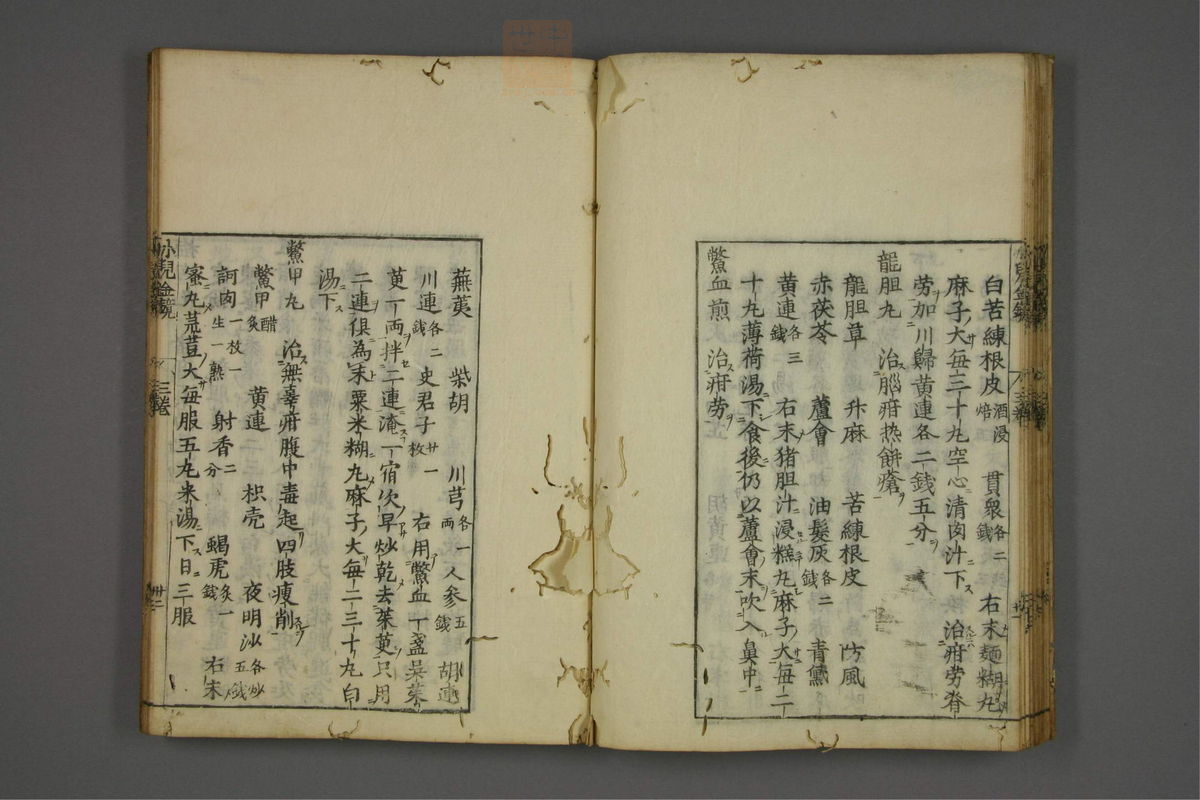 白苦練根皮酒浸焙 貫衆各二錢 右末麺糊丸
麻子大毎三十丸空心清肉汁下 治疳労脊
労加川歸黄連各二銭五分
龍胆丸 治脳疳热餅瘡
龍胆草 升麻 苦練根皮 防風
赤茯苓 蘆會 油髮灰各二錢 青黛
黄連各三錢 右末猪胆汁浸糕丸麻子大毎二
十丸薄荷湯下食後仍以蘆會末吹入鼻中
鱉血煎 治疳労
蕪荑 柴胡 川芎各一両 人参五錢 胡連
川連各二錢 史君子廿一枚 右用鱉血一盞呉茱
萸一両拌二連淹一宿次早炒乾去茱萸只用
二連俱為末粟米糊丸麻子大毎二三十丸白
湯下
鱉甲丸 治無辜疳腹中毒起四肢瘦削
鱉甲醋灸 黄連 枳壳 夜明沙各炒五錢
訶肉一枚一生一熟 射香二分 蝎虎灸一錢 右末
蜜丸菉荳大毎服五丸米湯下日三服
小兒金鏡 三巻 卅二